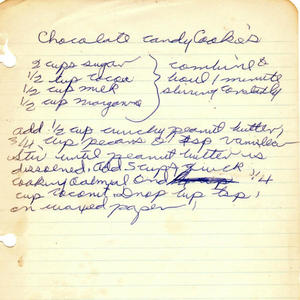 Chocolate candy Cookies
2 cups sugar
1/2 cup cocoa
1/2 cup milk
1/2 cup margarine
combine &
boil 1 minute
stirring constantly
add 1/2 cup crunchy peanut butter,
3/4 cup pecans & tsp vanilla
stir until peanut butter is
dissolved, add 3 cups quick
cooking oatmeal and 3/4
cup coconut. Drop
on waxed paper